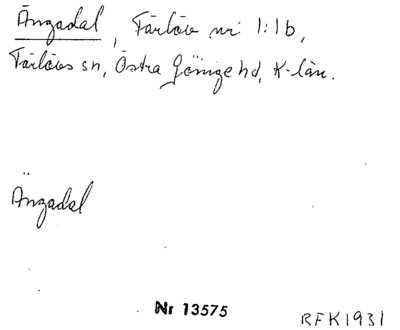 Ängadal, Färlöv nr 1:1b,
Färlövs sn, Östra Göinge hd, K-län.
Ängadal
Nr 13575
RFK1931